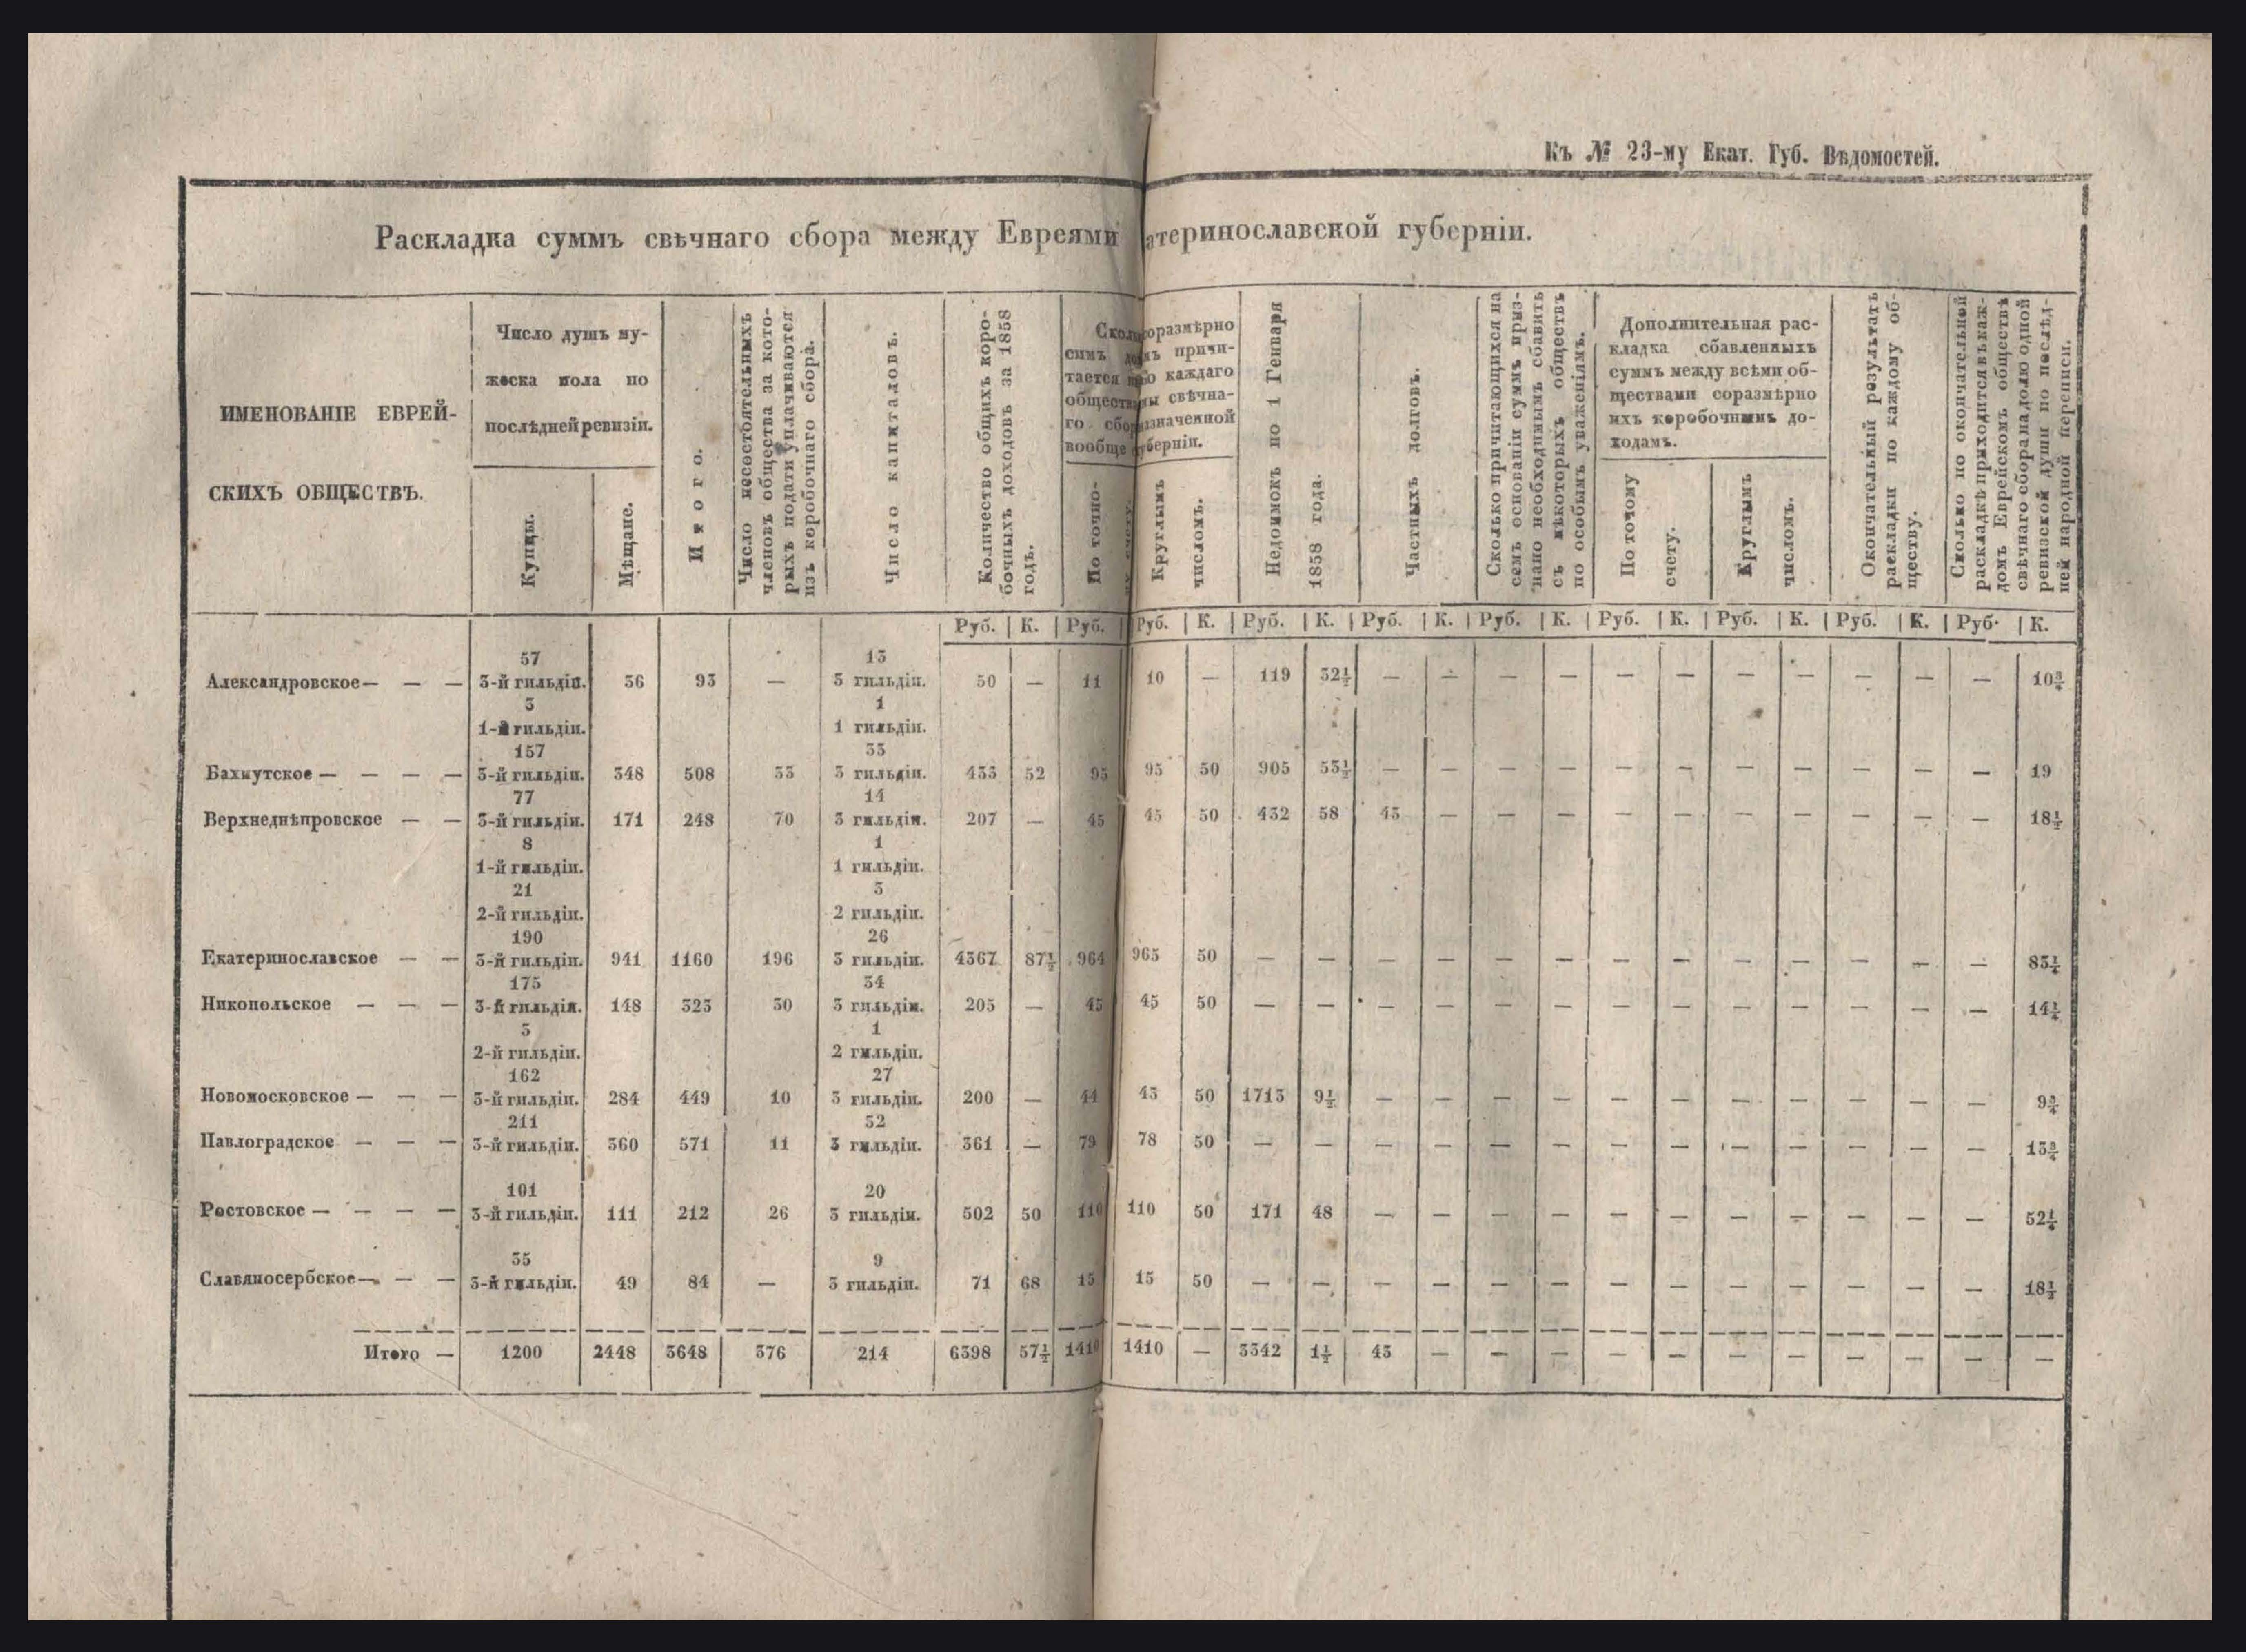 Къ № 23-му Екат. Губ. Вѣдомостей.
Раскладка суммъ свѣчнаго сбора между Евреями атеринославской губерніи.
ИМЕНОВАНІЕ ЕВРЕЙ-
СКИХЪ ОБЩЕСТВЪ.
Число душъ му-
жеска пола по
послѣдней ревизіи.
Купцы.
Мѣщане.
Итого.
Число несостоятельныхъ
членовъ общества за кото-
рыхъ подати уплачиваются
изъ коробочнаго сбора.
Число капиталовъ.
Количество общихъ коро-
бочныхъ доходовъ за 1858
годъ.
оразмѣрно
симъ причи-
тается каждаго
свѣчна-
го сбор азначенной
вообще уберніи.
По точно-
Круглымъ
числомъ.
Недоимокъ по 1 Генваря
1858 года.
Частныхъ долговъ.
Сколько причитающихся на
семъ основаніи суммъ приз-
нано необходимымъ сбавить
съ нѣкоторыхъ обществъ
по особымъ уваженіямъ.
Дополнительная рас-
кладка сбавленныхъ
суммъ между всѣми об-
ществами соразмѣрно
ихъ коробочнымъ до-
ходамъ.
По точому
счету.
Круглымъ
числомъ.
Окончательный результатъ
раскладки по каждому об-
ществу.
Сколько по окончательной
раскладкѣ приходится въ каж-
домъ Еврейскомъ обществѣ
свѣчнаго сбора на долю одной
ревизской души по послѣд-
ней народной переписи.
Руб. | К. | Руб. | Руб. | К. | Руб. | К. | Руб. | К. | Руб. | К. | Руб. | К. | Руб. | К. | Руб. | К. | Руб. | К.
57 13
Александровское — — — 3-й гильдіи. 36 93 — 3 гильдіи. 50 — 11 10 — 119 32½ — — — — — — — — — — — 10¾
3 1
1-й гильдіи. 1 гильдіи.
157 33
Бахмутское — — — — 3-й гильдіи. 348 508 33 3 гильдіи. 433 52 95 95 50 905 53½ — — — — — — — — — — — 19
77 14
Верхнеднѣпровское — — 3-й гильдіи. 171 248 70 3 гильдіи. 207 — 45 45 50 432 58 43 — — — — — — — — — — 18½
8 1
1-й гильдіи. 1 гильдіи.
21 3
2-й гильдіи. 2 гильдіи.
190 26
Екатеринославское — — 3-й гильдіи. 941 1160 196 3 гильдіи. 4367 87½ 964 965 50 — — — — — — — — — — — — — 83¼
175 34
Никопольское — — — 3-й гильдіи. 148 323 30 3 гильдіи. 205 — 45 45 50 — — — — — — — — — — — — — 14¼
3 1
2-й гильдіи. 2 гильдіи.
162 27
Новомосковское — — — 3-й гильдіи. 284 449 10 3 гильдіи. 200 — 44 43 50 1713 9½ — — — — — — — — — — — 9¾
211 32
Павлоградское — — — 3-й гильдіи. 360 571 11 3 гильдіи. 361 — 79 78 50 — — — — — — — — — — — — — 13¾
101 20
Ростовское — — — — 3-й гильдіи. 111 212 26 3 гильдіи. 502 50 110 110 50 171 48 — — — — — — — — — — — 52¼
35 9
Славяносербское — — — 3-й гильдіи. 49 84 — 3 гильдіи. 71 68 15 15 50 — — — — — — — — — — — — — 18½
Итого — 1200 2448 3648 376 214 6398 57½ 1410 1410 — 3342 1½ 43 — — — — — — — — — — —